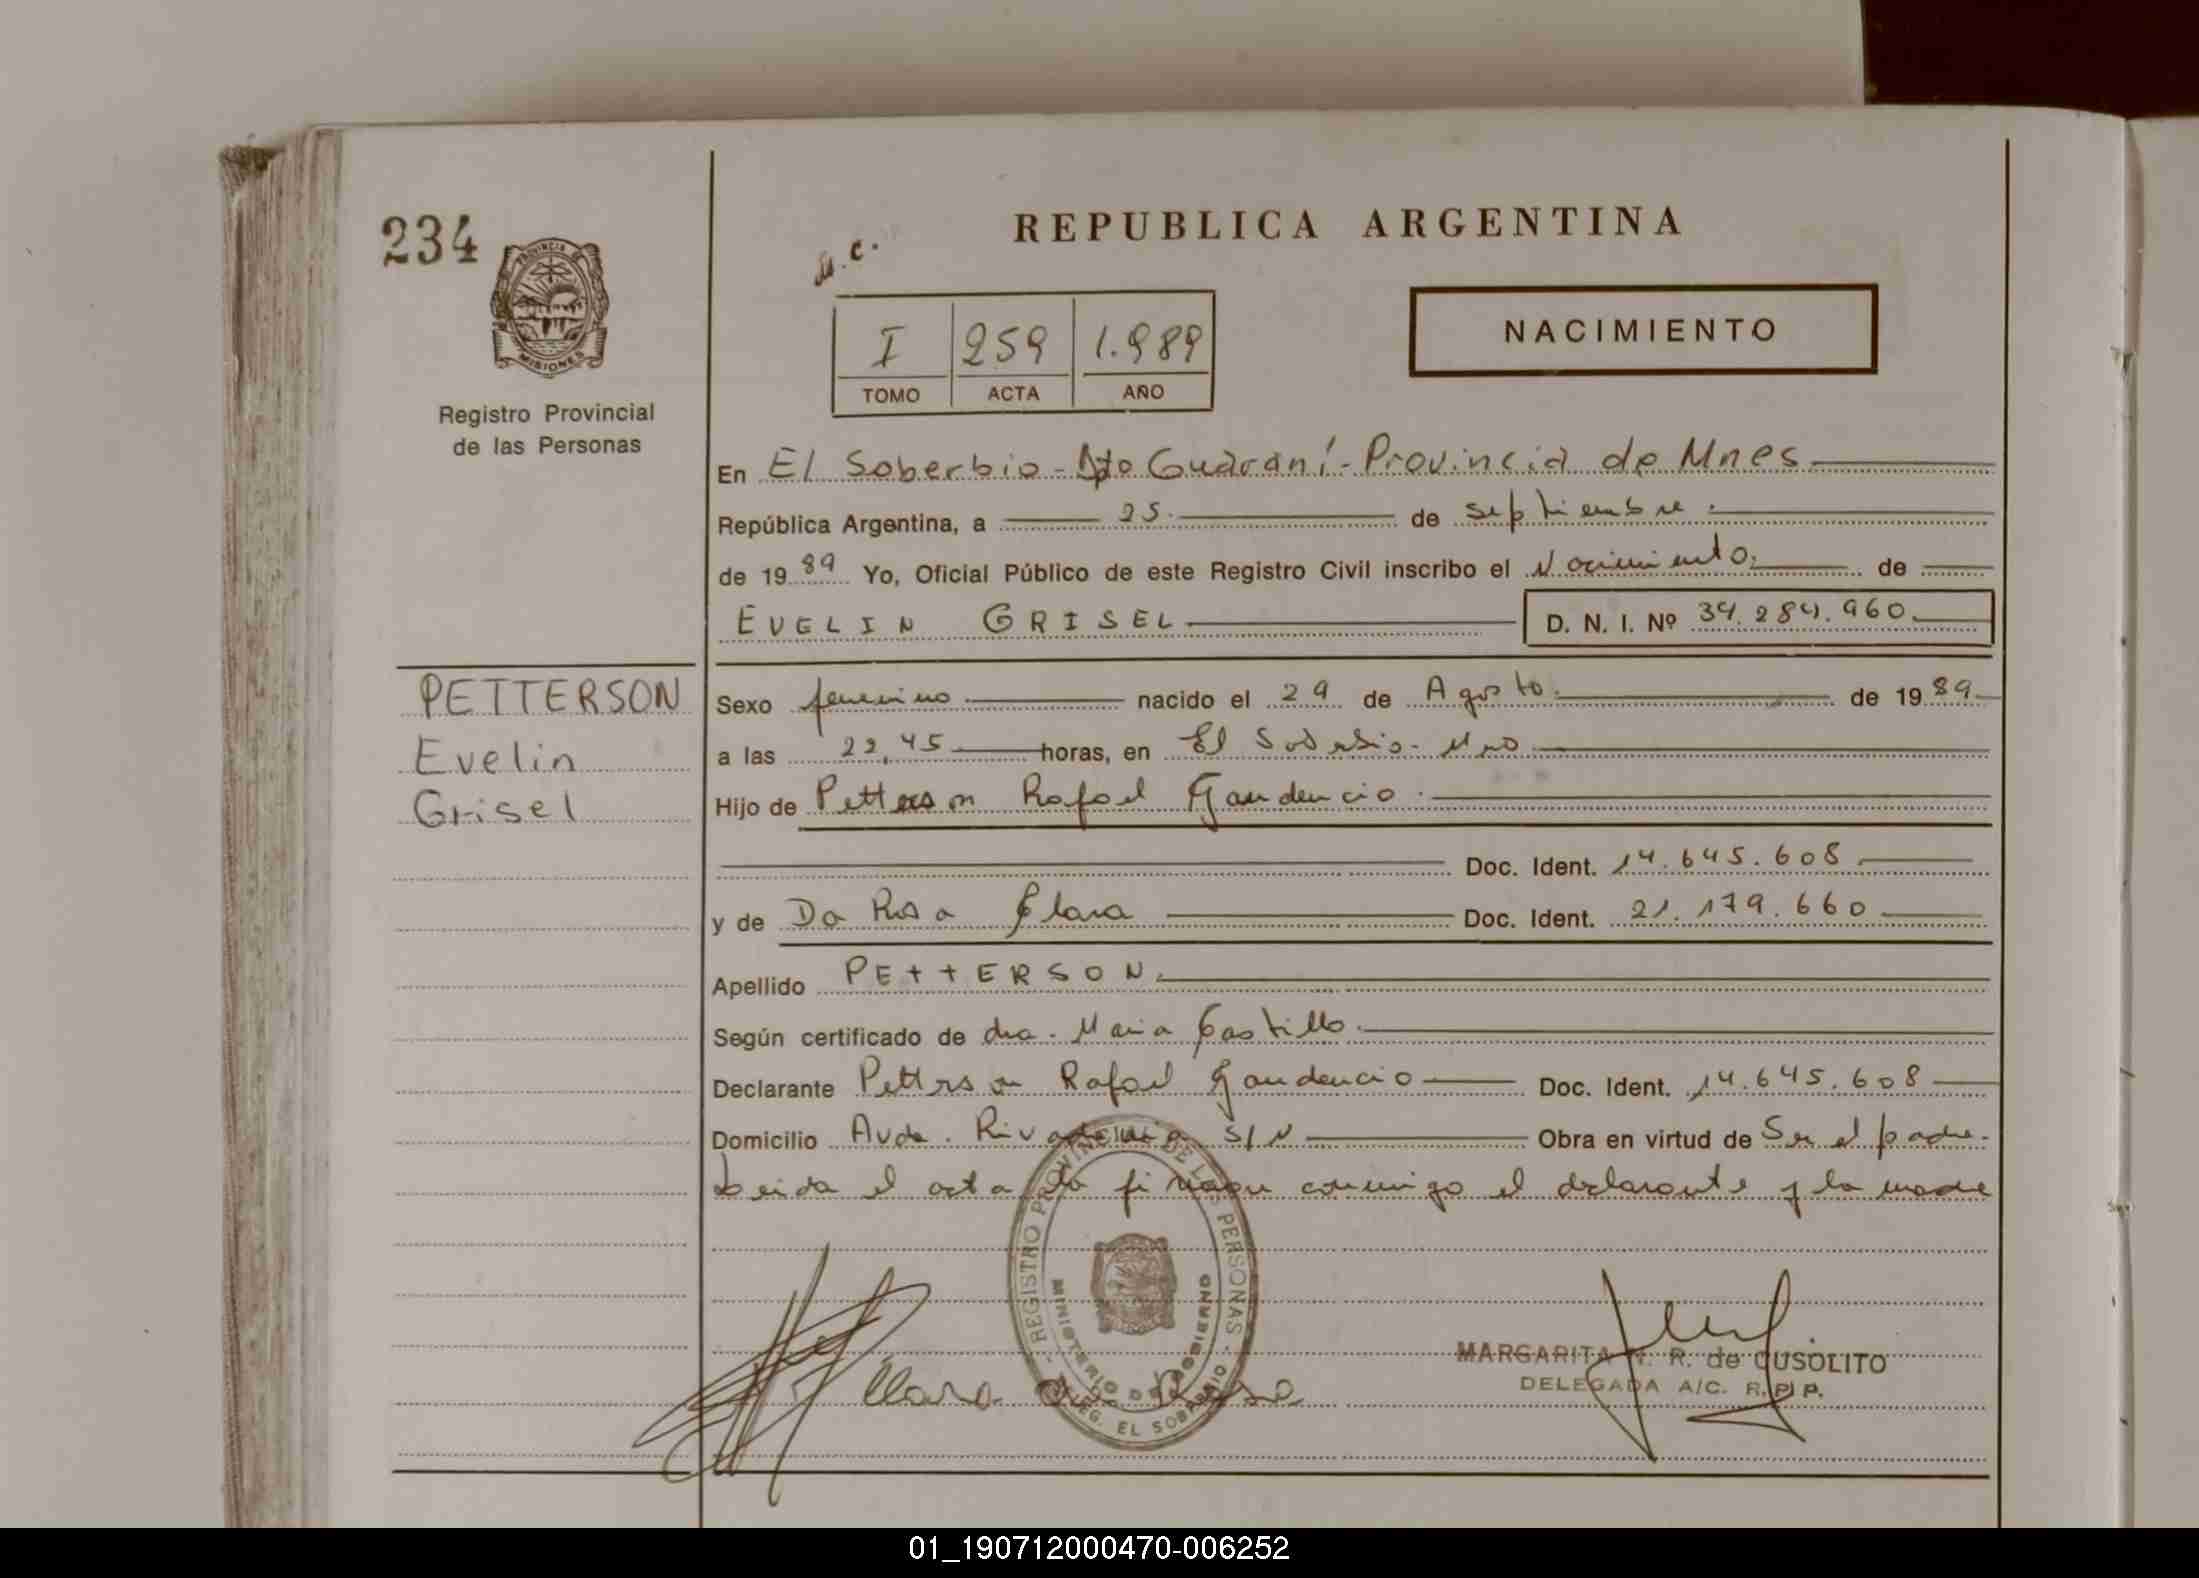 234
PROVINCIA DE
MISIONES
Registro Provincial
de las Personas
REPUBLICA ARGENTINA
I 259 1.989
TOMO ACTA AÑO
NACIMIENTO
En El Soberbio - Dpto Guaraní - Provincia de Mnes
República Argentina, a 25 de septiembre
de 1989 Yo, Oficial Público de este Registro Civil inscribo el Nacimiento de
EVELIN GRISEL D. N. I. Nº 34.284.960
PETTERSON
Evelin
Grisel
Sexo femenino nacido el 29 de Agosto de 1989
a las 22,45 horas, en El Soberbio - Mnes
Hijo de Petterson Rafael Gaudencio
Doc. Ident. 14.645.608
y de Da Rosa Clara Doc. Ident. 21.179.660
Apellido PETTERSON
Según certificado de dra. Maria Castillo
Declarante Petterson Rafael Gaudencio Doc. Ident. 14.645.608
Domicilio Avda. Rivadavia S/N Obra en virtud de Ser el padre.
Leida el acta la firman conmigo el declarante y la madre
REGISTRO PROVINCIAL DE LAS PERSONAS
MINISTERIO DE GOBIERNO
DELEG. EL SOBERBIO
Clara Da Rosa
MARGARITA R. de CUSOLITO
DELEGADA A/C. R.P.P.
01_190712000470-006252